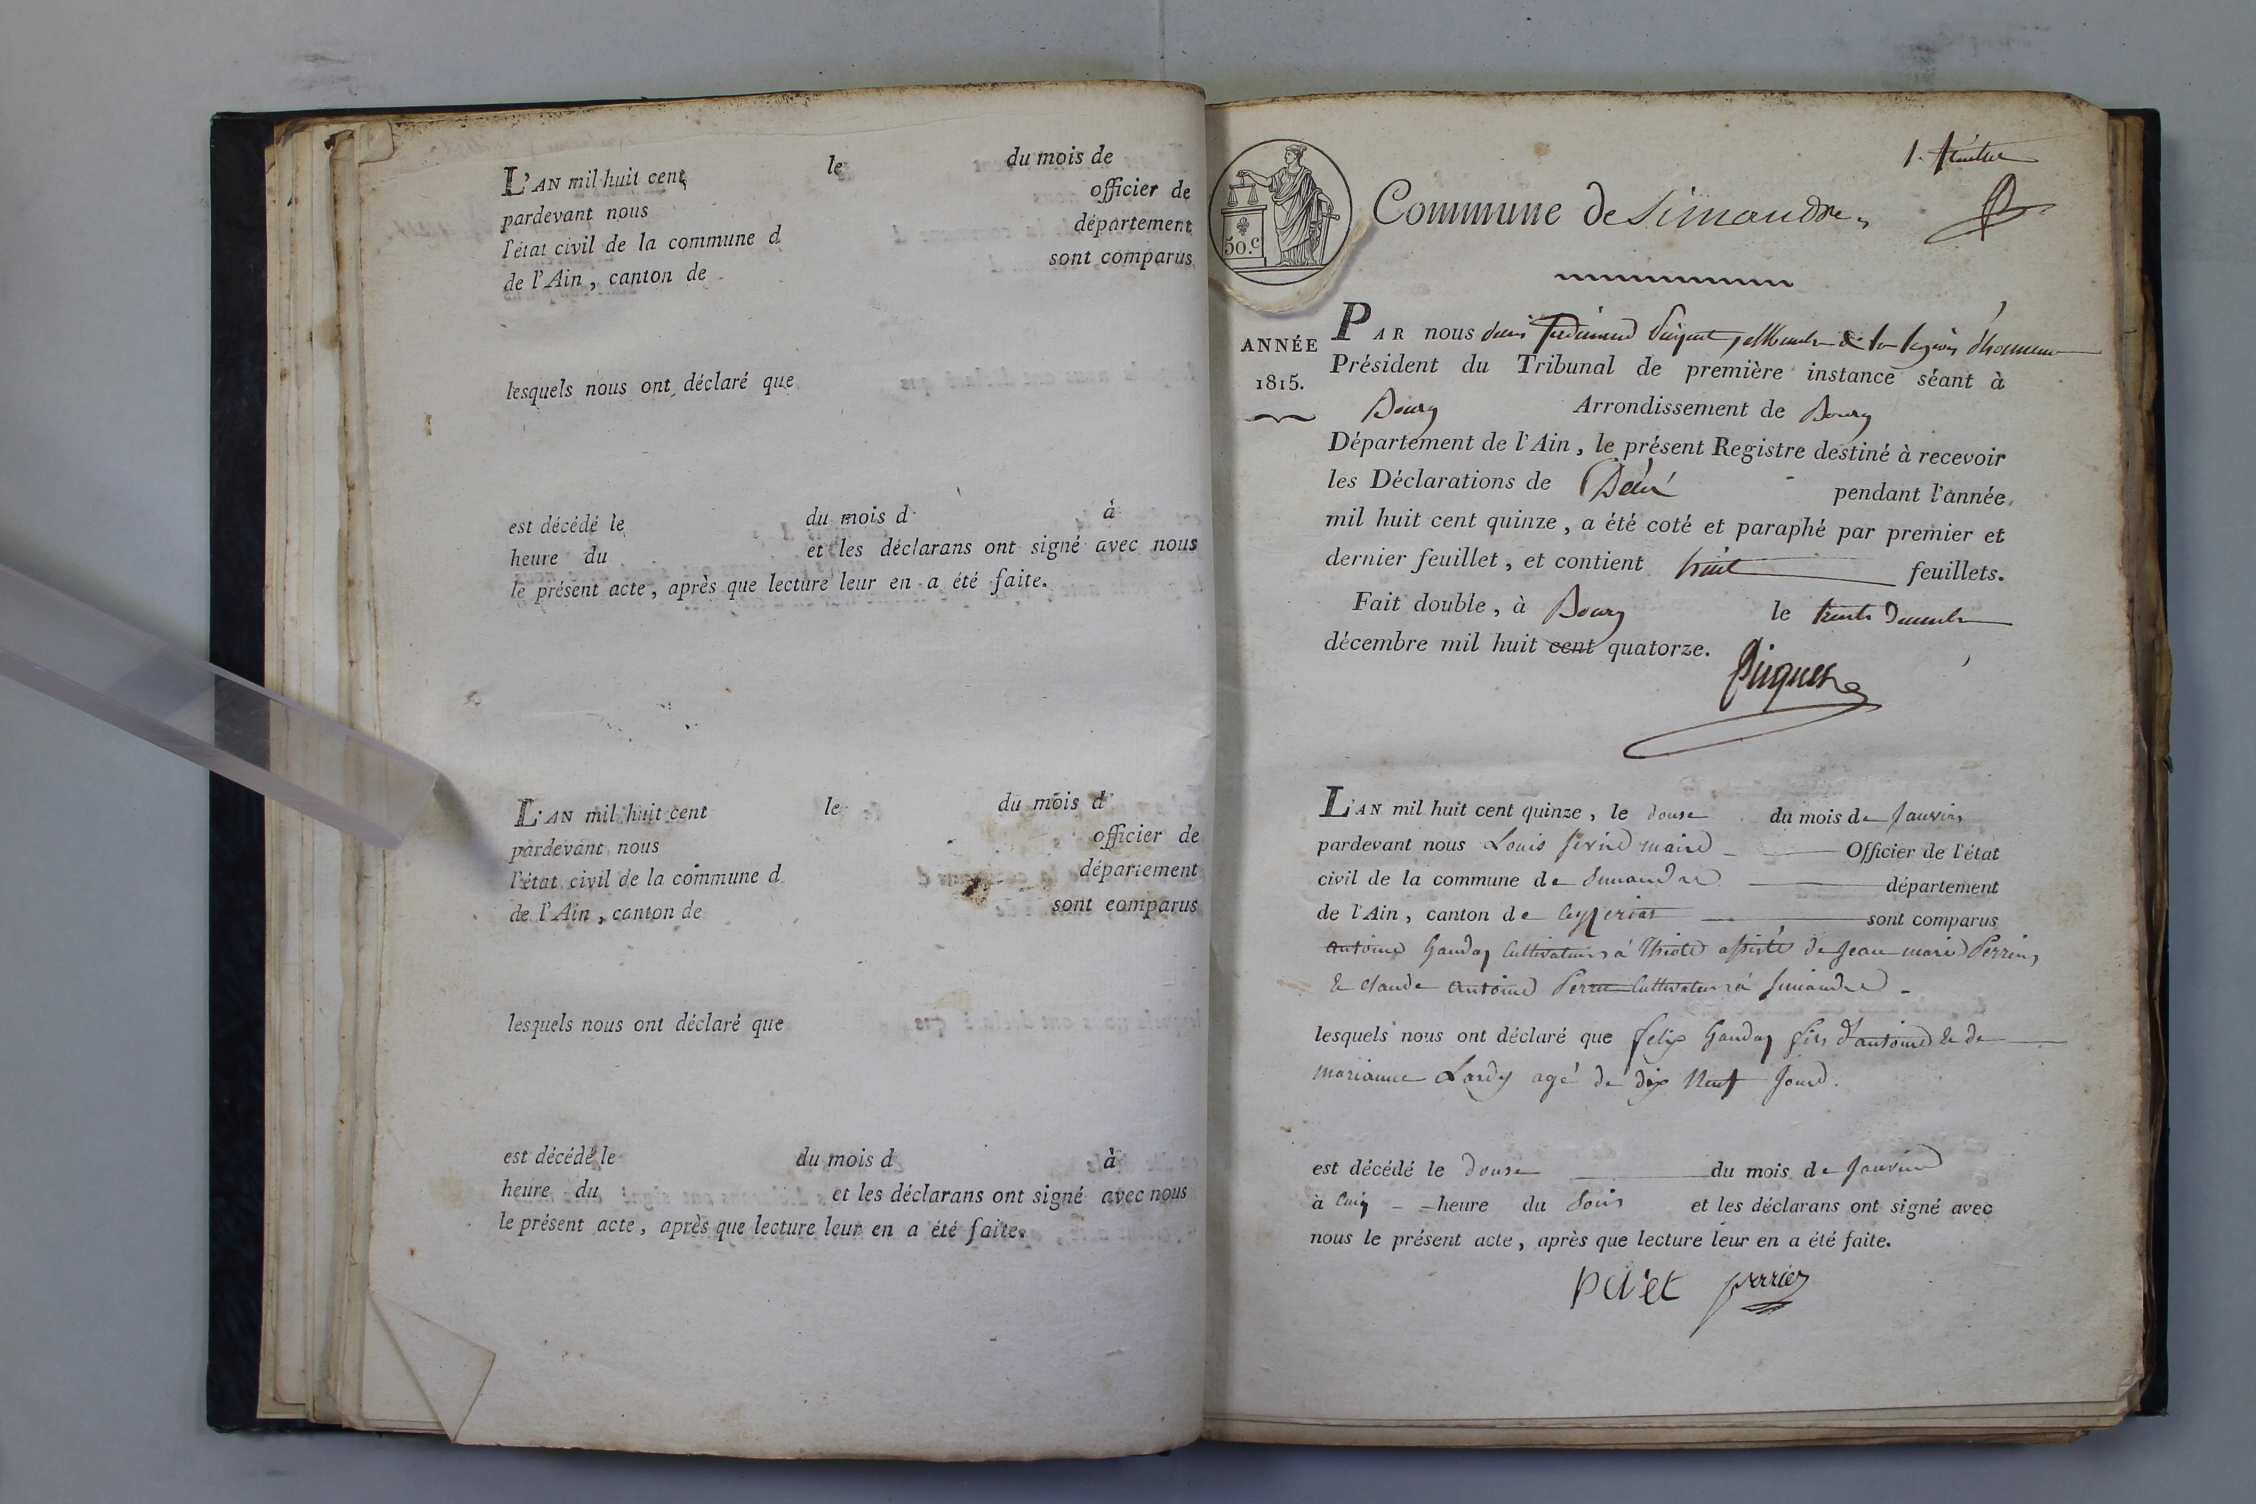 L'AN mil huit cent le du mois de
pardevant nous officier de
l'état civil de la commune d département
de l'Ain, canton de sont comparus
lesquels nous ont déclaré que
est décédé le du mois d à
heure du et les déclarans ont signé avec nous
le présent acte, après que lecture leur en a été faite.
L'AN mil huit cent le du mois d
pardevant nous officier de
l'état civil de la commune d département
de l'Ain, canton de sont comparus
lesquels nous ont déclaré que
est décédé le du mois d à
heure du et les déclarans ont signé avec nous
le présent acte, après que lecture leur en a été faite.
50.c
Commune de Simandre,
ANNÉE
1815.
PAR nous membre de la legion d'honneur
Président du Tribunal de première instance séant à
Bourg Arrondissement de Bourg
Département de l'Ain, le présent Registre destiné à recevoir
les Déclarations de Décès pendant l'année
mil huit cent quinze, a été coté et paraphé par premier et
dernier feuillet, et contient huit feuillets.
Fait double, à Bourg le trente
décembre mil huit cent quatorze.
L'AN mil huit cent quinze, le douse du mois de Janvier
pardevant nous Louis maire Officier de l'état
civil de la commune de Simandre département
de l'Ain, canton de Ceyzeriat sont comparus
antoine Ganday Cultivateur à assisté de Jean marie Perrin,
& claude antoine Cultivateur à Simandre
lesquels nous ont déclaré que felix Ganday fils d'antoine & de
marianne Lardy agé de dix Neuf Jour
est décédé le douse du mois de Janvier
à Cinq heure du Soir et les déclarans ont signé avec
nous le présent acte, après que lecture leur en a été faite.
perrier